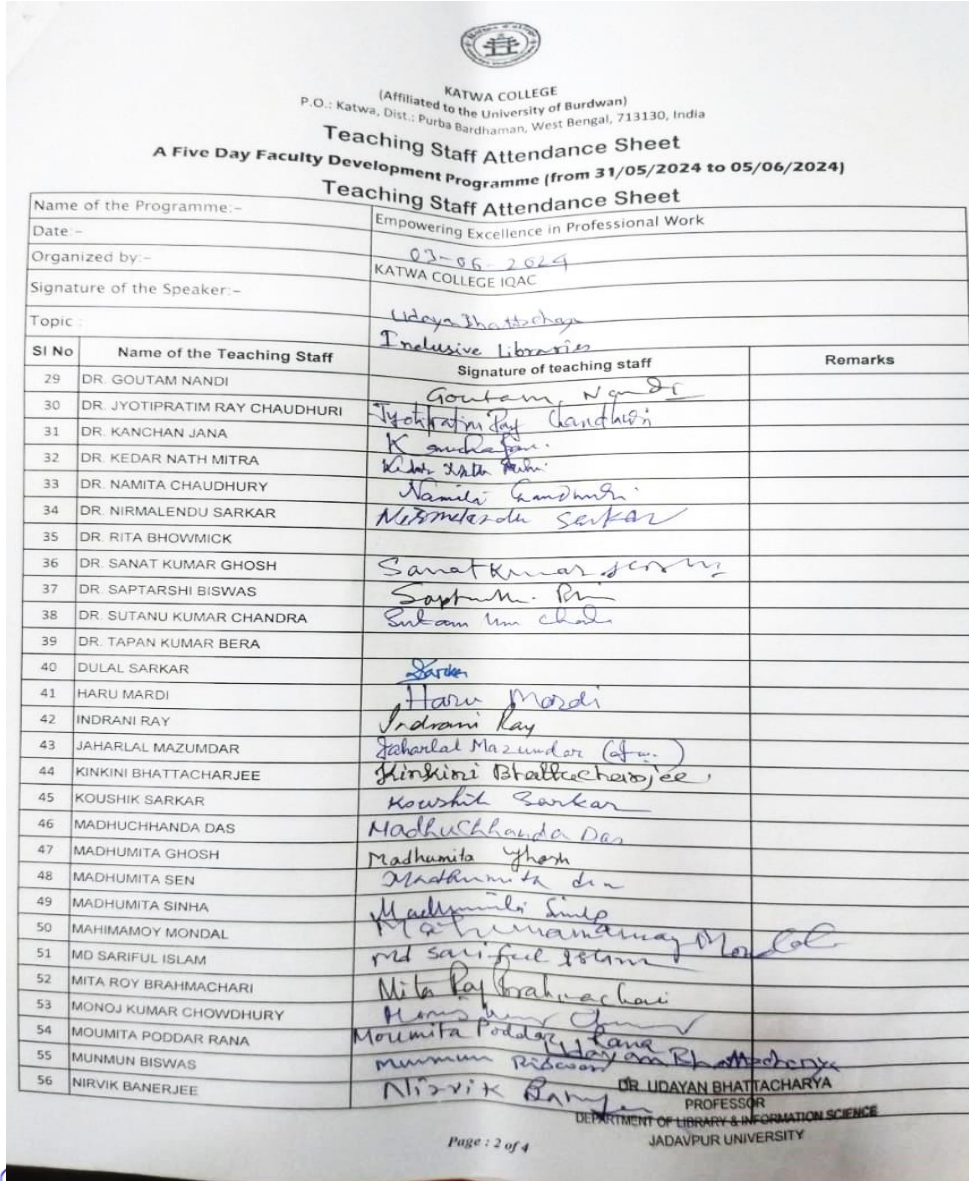 KATWA COLLEGE
(Affiliated to the University of Burdwan)
P.O.: Katwa, Dist.: Purba Bardhaman, West Bengal, 713130, India
Teaching Staff Attendance Sheet
A Five Day Faculty Development Programme (from 31/05/2024 to 05/06/2024)
Teaching Staff Attendance Sheet
Name of the Programme:- Empowering Excellence in Professional Work
Date:- 03-06-2024
Organized by:- KATWA COLLEGE IQAC
Signature of the Speaker:- Udayan Bhattacharya
Topic : Inclusive Libraries
Sl No Name of the Teaching Staff Signature of teaching staff Remarks
29 DR. GOUTAM NANDI Goutam Nandi
30 DR. JYOTIPRATIM RAY CHAUDHURI Jyotipratim Ray Chaudhuri
31 DR. KANCHAN JANA
32 DR. KEDAR NATH MITRA Kedar Nath
33 DR. NAMITA CHAUDHURY Namita Chaudhuri
34 DR. NIRMALENDU SARKAR Nirmalendu Sarkar
35 DR. RITA BHOWMICK
36 DR. SANAT KUMAR GHOSH Sanat Kumar Ghosh
37 DR. SAPTARSHI BISWAS
38 DR. SUTANU KUMAR CHANDRA
39 DR. TAPAN KUMAR BERA
40 DULAL SARKAR Sarkar
41 HARU MARDI Haru Mardi
42 INDRANI RAY Indrani Ray
43 JAHARLAL MAZUMDAR Jaharlal Mazumdar
44 KINKINI BHATTACHARJEE Kinkini Bhattacharjee
45 KOUSHIK SARKAR Koushik Sarkar
46 MADHUCHHANDA DAS Madhuchhanda Das
47 MADHUMITA GHOSH Madhumita Ghosh
48 MADHUMITA SEN Madhumita Sen
49 MADHUMITA SINHA Madhumita Sinha
50 MAHIMAMOY MONDAL Mahimamay Mondal
51 MD SARIFUL ISLAM Md Sariful Islam
52 MITA ROY BRAHMACHARI Mita Roy Brahmachari
53 MONOJ KUMAR CHOWDHURY
54 MOUMITA PODDAR RANA Moumita Poddar Rana
Udayan Bhattacharya
55 MUNMUN BISWAS Munmun Biswas
56 NIRVIK BANERJEE Nirvik Banerjee
DR. UDAYAN BHATTACHARYA
PROFESSOR
DEPARTMENT OF LIBRARY & INFORMATION SCIENCE
JADAVPUR UNIVERSITY
Page : 2 of 4